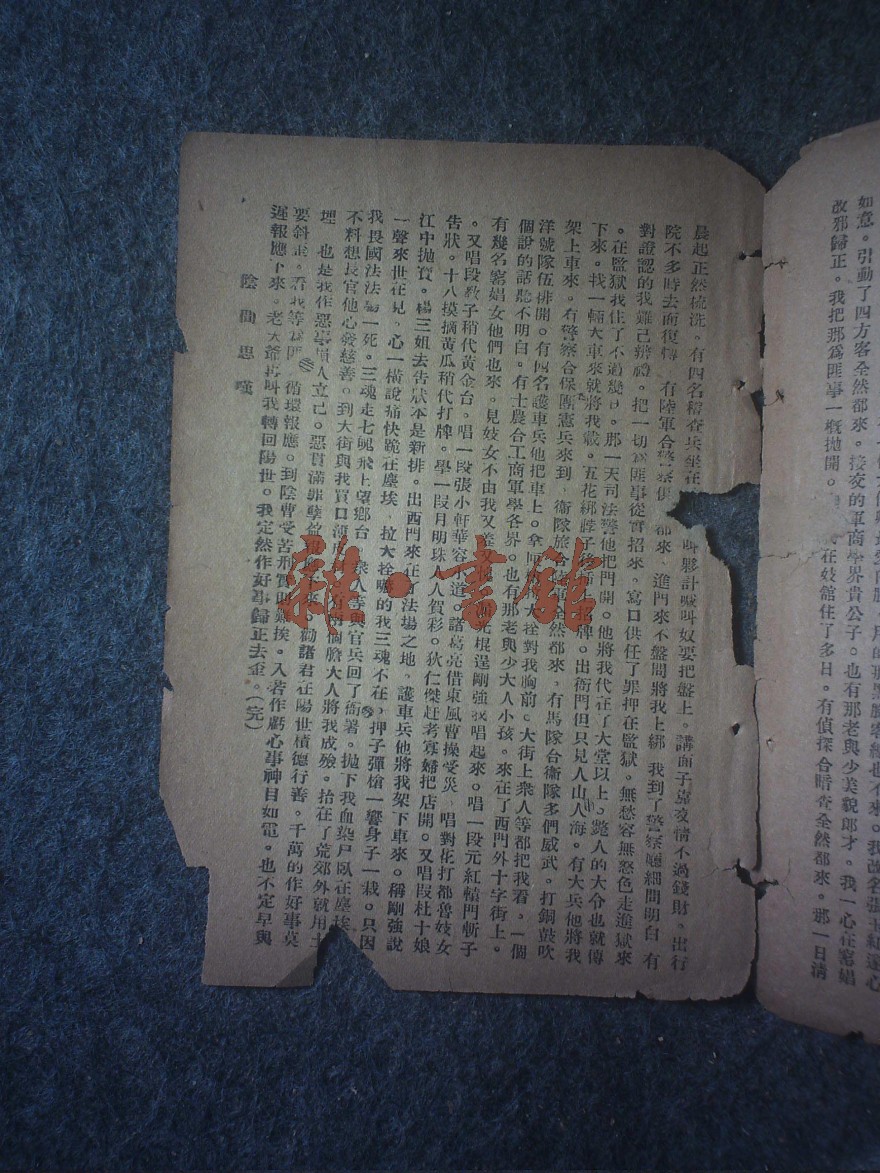 如意。引動了四方客全然都來。接交的軍商學界貴公子。也有那老與少美貌郎才。我一心在窰娼
改邪歸正。我把那爲匪事一概抛開。在妓舘住了多日。有偵探合暗查全然都來。那一日清
晨起正然梳洗。有四名稽查兵坐在叫夥計喊叫奴要把盤上。講面子靠交情不過錢財。出行
院不多時去而復轉。有陸軍合警察俱都來。進門來不盤問將我上綁。我到了警察廳細問明白。有
對證認的我難已辨禮。把一切爲匪事從實招來。寫口供任了罪押在監獄。無愁容無怒色走進獄來
。在監獄我住了不過幾日。那一天司法警他把門開。他將我代在了大堂以上。斃人的大令也就傳
下來。找一輛大車來就將我載。五花綁脖子後插上出牌。出衙門但只見人山人海。有大兵他將我
架上車來。有警察合保團憲兵來到。衛隊旅合軍全然都來。有馬隊合衛隊多們威武。打銅鼓吹
洋號隊伍排開。有四名護車兵他把車上。拿大拴對我胸前。大街上衆人等都把我看。一個
個說的話聽不明白。有士農合工商軍學各界。也有那老與少大人小孩。來在了西門外十字街上。
有幾名窰娼女他們也來。見妓女不由我又羞又光棍逞剛強我唱起來。唱一段元紅轅門斬子
。又唱段教子稍代黃金台。唱一段張小軒華容小道。諸葛亮借東風曹操受災。唱對花打都魯妓女
告狀。十八摸摘黃瓜稍代打牌。學一段月明珠人人賀彩。狄仁傑赶考寡婦把店開。又唱叚杜十娘
江中抛寶。楊三姐去告狀本是新排。出西門來在了法場之地。護車兵他將我架下車來。稱剛強說
一聲來世在見。心一橫說痛快跪在塵埃。拉大拴嚇的我三魂不在。押子彈槍一響身子一栽。只因
我畏國法法塲一死。三魂走七魄飛上望鄉台。衆人等與官兵回了衙署。抛下我血染尸臥在塵埃
不料想長官他心發慈善。到大街與我買口有兩個膽大人將我成殮。抬在了荒郊外就用土
埋。也是我作惡事損人立己。惡貫滿罪孽盈報下來。勸諸君在陽世積德行善。千萬的作好事莫
要斜歪。看我等爲匪循環報應。到陰曹受苦刑實叫難挨。入若作虧心事神目如電。也不定早與
遲報應下來。老天爺再叫我轉回陽世。我定然作好事歸正去歪。（完）
陰曹思嘆
雜·書館